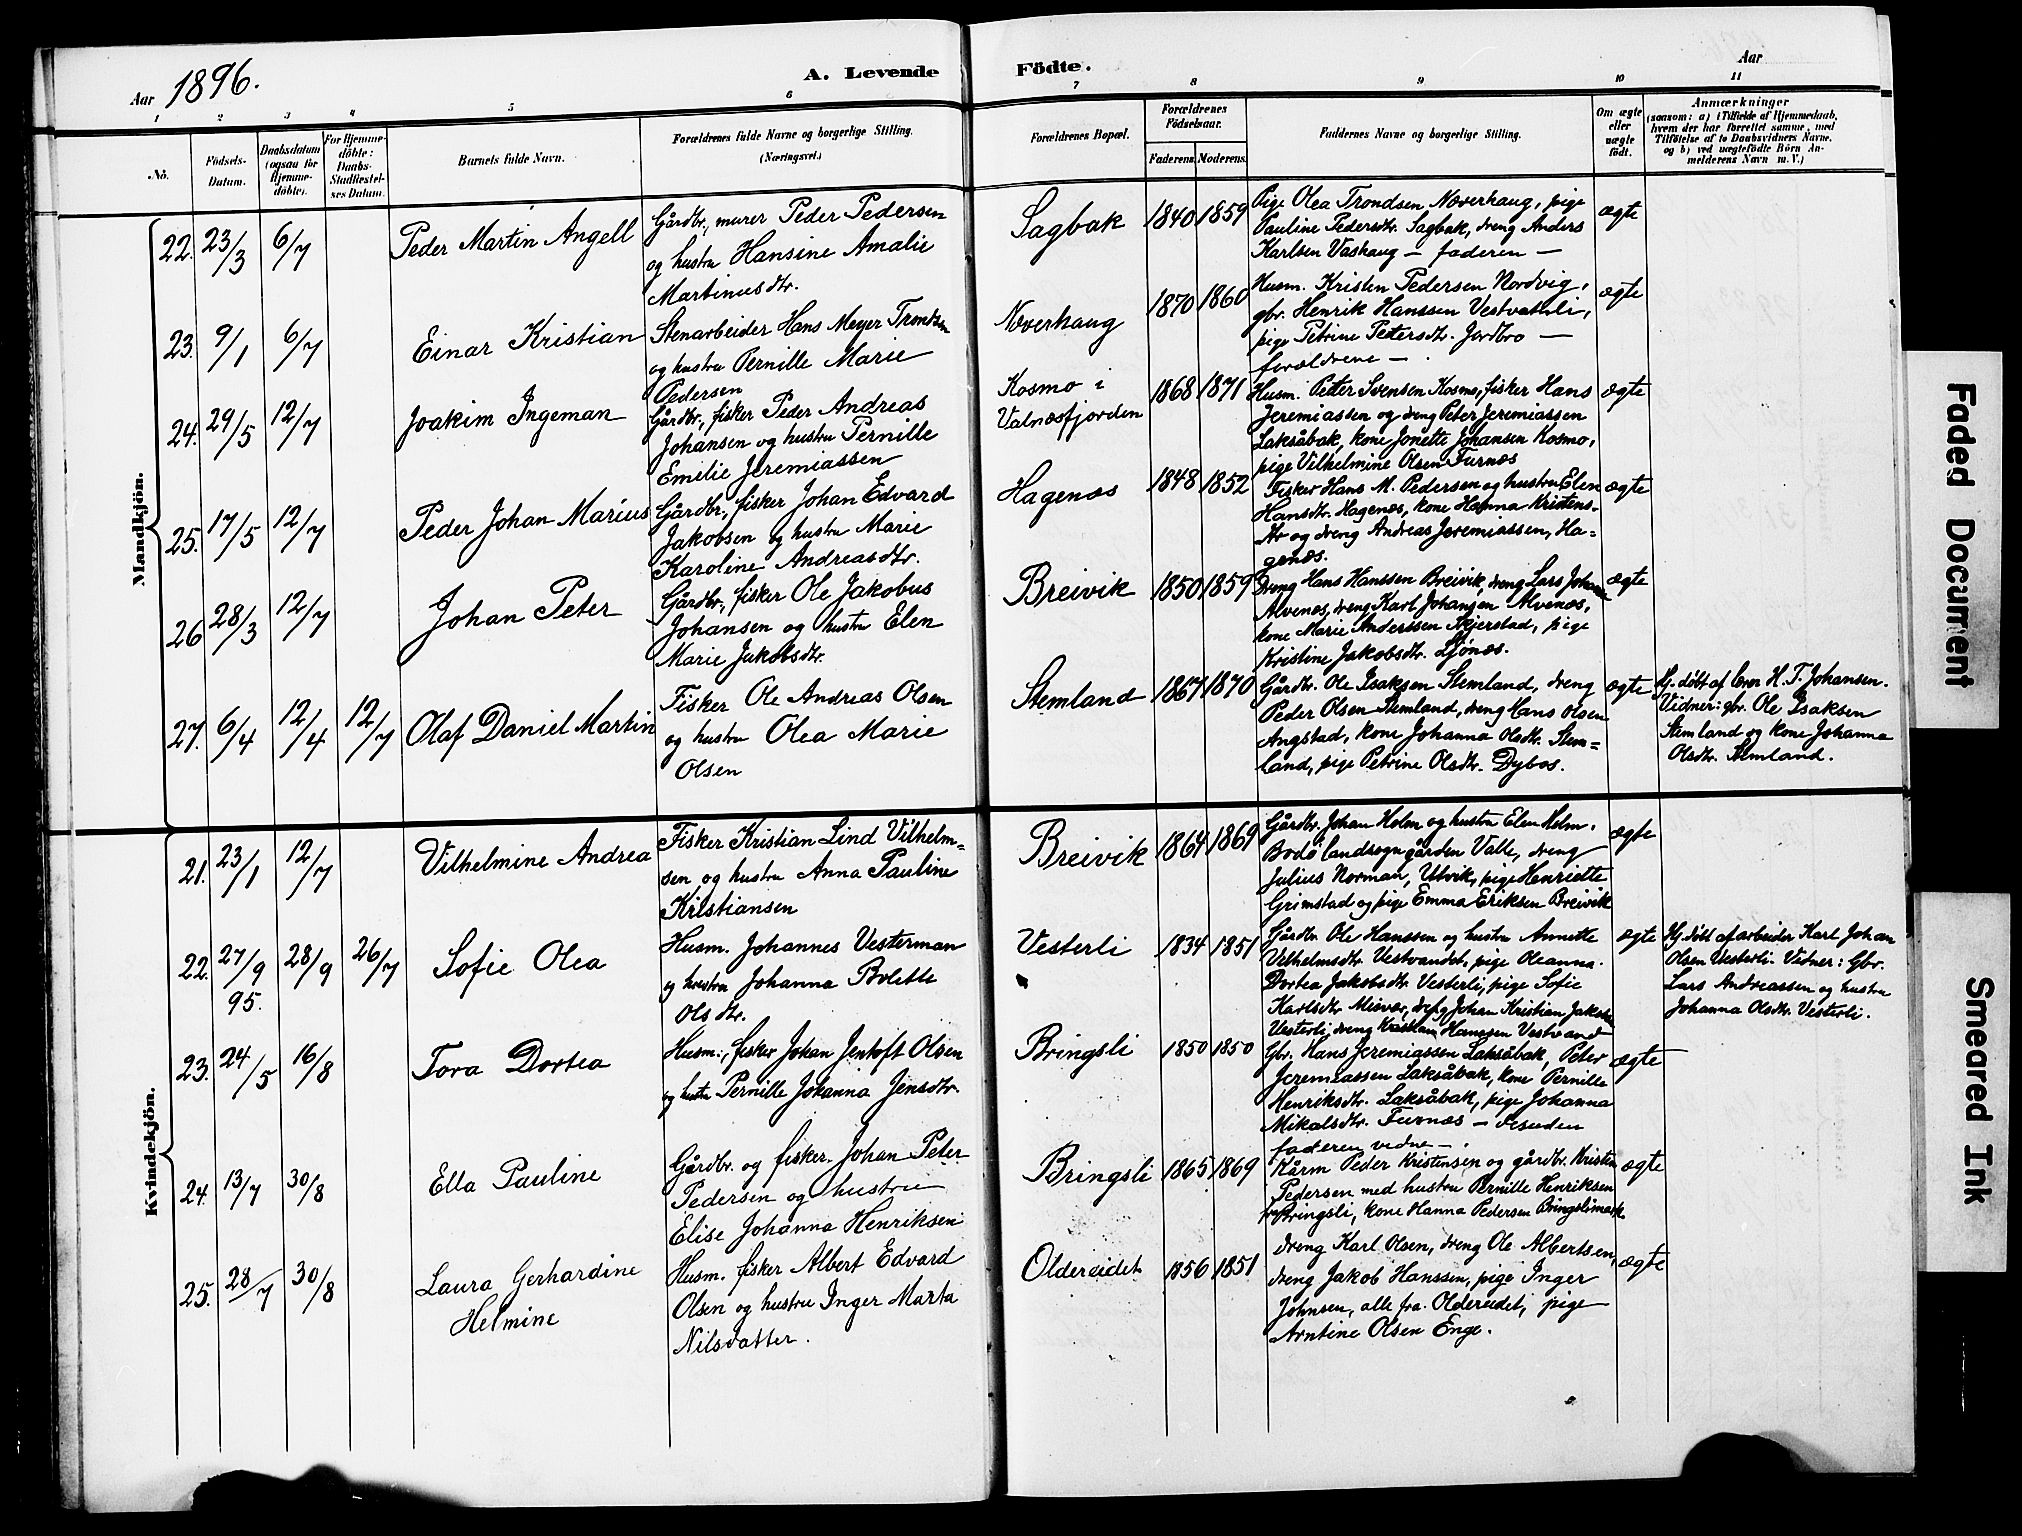 Aar 1896.
A. Levende
Födte.
Aar
1 2 3 4 5 6 7 8 9 10 11
No.
Födsels-
Datum.
Daabsdatum
(ogsaa for
Hjemme-
döbte).
For Hjemme-
döbte:
Daabs-
Stadfæstel-
ses Datum.
Barnets fulde Navn.
Forældrenes fulde Navne og borgerlige Stilling.
(Næringsvei.)
Forældrenes Bopæl.
Forældrenes
Födselsaar.
Faderens. Moderens.
Faddernes Navne og borgerlige Stilling.
Om ægte
eller
uægte
födt.
Anmærkninger
(saasom: a) i Tilfælde af Hjemmedaab,
hvem der har forrettet samme, med
Tilföielse af to Daabsvidners Navne.
og b) ved uægtefödte Börn An-
melderens Navn m. V.)
Mandkjön.
22. 23/3 6/7
Peder Martin Angell
Gårdbr., murer Peder Pedersen
og hustru Hansine Amalie
Martinusdtr.
Sagbak 1840 1859
Pige Olea Trondsen Næverhaug, pige
Pauline Pedersdtr. Sagbak, dreng Anders
Karlsen Vashaug — faderen —
ægte
23. 9/1 6/7
Einar Kristian
Stenarbeider Hans Meyer Trondsen
og hustru Pernille Marie
Pedersen
Næverhaug 1870 1860
Husm. Kristen Pedersen Nordvig,
gbr. Henrik Hanssen Vestvatnli,
pige Petrine Petersdtr. Jordbro —
forældrene —
ægte
24. 29/5 12/7
Joakim Ingeman
Gårdbr., fisker Peder Andreas
Johansen og hustru Pernille
Emelie Jeremiassen
Kosmo i
Valnæsfjorden
1868 1871
Husm. Peter Svensen Kosmo, fisker Hans
Jeremiassen og dreng Peter Jeremiassen
Laksåbak, kone Jonette Johansen Kosmo,
pige Vilhelmine Olsen Furnæs
ægte
25. 17/5 12/7
Peder Johan Marius
Gårdbr., fisker Johan Edvard
Jakobsen og hustru Marie
Karoline Andreasdtr.
Hagenæs 1848 1852
Fisker Hans M. Pedersen og hustru Elen
Hansdtr. Hagenæs, kone Hanna Kristens-
dtr og dreng Andreas Jeremiassen, Ha-
genæs.
ægte
26 28/3 12/7
Johan Peter
Gårdbr., fisker Ole Jakobus
Johansen og hustru Elen
Marie Jakobsdtr.
Breivik 1850 1859
Dreng Hans Hanssen Breivik, dreng Lars Johan
Alvenæs, dreng Karl Johansen Alvenæs,
kone Marie Anderssen Skjerstad, pige
Kristine Jakobsdtr. Ljönæs.
ægte
27. 6/4 12/4 12/7
Olaf Daniel Martin
Fisker Ole Andreas Olsen
og hustru Olea Marie
Olsen
Stemland 1867 1870
Gårdbr. Ole Isaksen Stemland, dreng
Peder Olsen Stemland, dreng Hans Olsen
Angstad, kone Johanna Olsdtr. Stem=
land, pige Petrine Olsdtr. Dybos.
ægte
Hj. døbt af H. T. Johansen.
Vidner: gbr. Ole Isaksen
Stemland og kone Johanna
Olsdtr. Stemland.
Kvindekjön.
21. 23/1 12/7
Vilhelmine Andrea
Fisker Kristian Lind Vilhelm=
sen og hustru Anna Pauline
Kristiansen
Breivik 1864 1869
Gårdbr. Johan Holm og hustru Elen Holm.
Bodö landsogn gården Valle, dreng
Julius Norman, Utvik, pige Henriette
Grimstad og pige Emma Eriksen Breivik
ægte
22. 27/9 95. 28/9 26/7
Sofie Olea
Husm. Johannes Vesterman
og hustru Johanna Bolette
Olsdtr.
Vesterli 1834 1851
Gårdbr Ole Hanssen og hustru Annette
Vilhelmsdtr Vestvandet, pige Oleanna
Dortea Jakobsdtr Vesterli, pige Sofie
Karlsdtr Misvær, dreng Johan Kristian Jakobsen
Vesterli dreng Kristian Hanssen Vestvand
ægte
Hj. døbt af arbeider Karl Johan
Olsen Vesterli. Vidner: Gbr.
Lars Andreassen og hustru
Johanna Olsdtr Vesterli.
23. 24/5 16/8
Tora Dortea
Husm., fisker Johan Jentoft Olsen
og hustru Pernille Johanna Jensdtr.
Bringsli 1850 1850
Gbr. Hans Jeremiassen Laksåbak, Peter
Jeremiassen Laksåbak, kone Pernille
Henriksdtr. Laksåbak, pige Johanna
Mikalsdtr. Furnæs — desuden
faderen vidne —.
ægte
24. 13/7 30/8
Ella Pauline
Gårdbr. og fisker. Johan Peter
Pedersen og hustru
Elise Johanna Henriksen
Bringsli 1865 1869
Kårm Peder Kristensen og gårdbr. Kristen
Pedersen med hustru Pernille Henriksen
fra Bringsli, kone Hanna Pedersen Bringslimark
ægte
25. 28/7 30/8
Laura Gerhardine
Helmine
Husm. fisker Albert Edvard
Olsen og hustru Inger Marta
Nilsdatter.
Oldereidet 1856 1851
Dreng Karl Olsen, dreng Ole Albertsen,
dreng Jakob Hanssen, pige Inger
Johnsen, alle fra Oldereidet, pige
Arntine Olsen Enge.
ægte
Faded Document
Smeared Ink